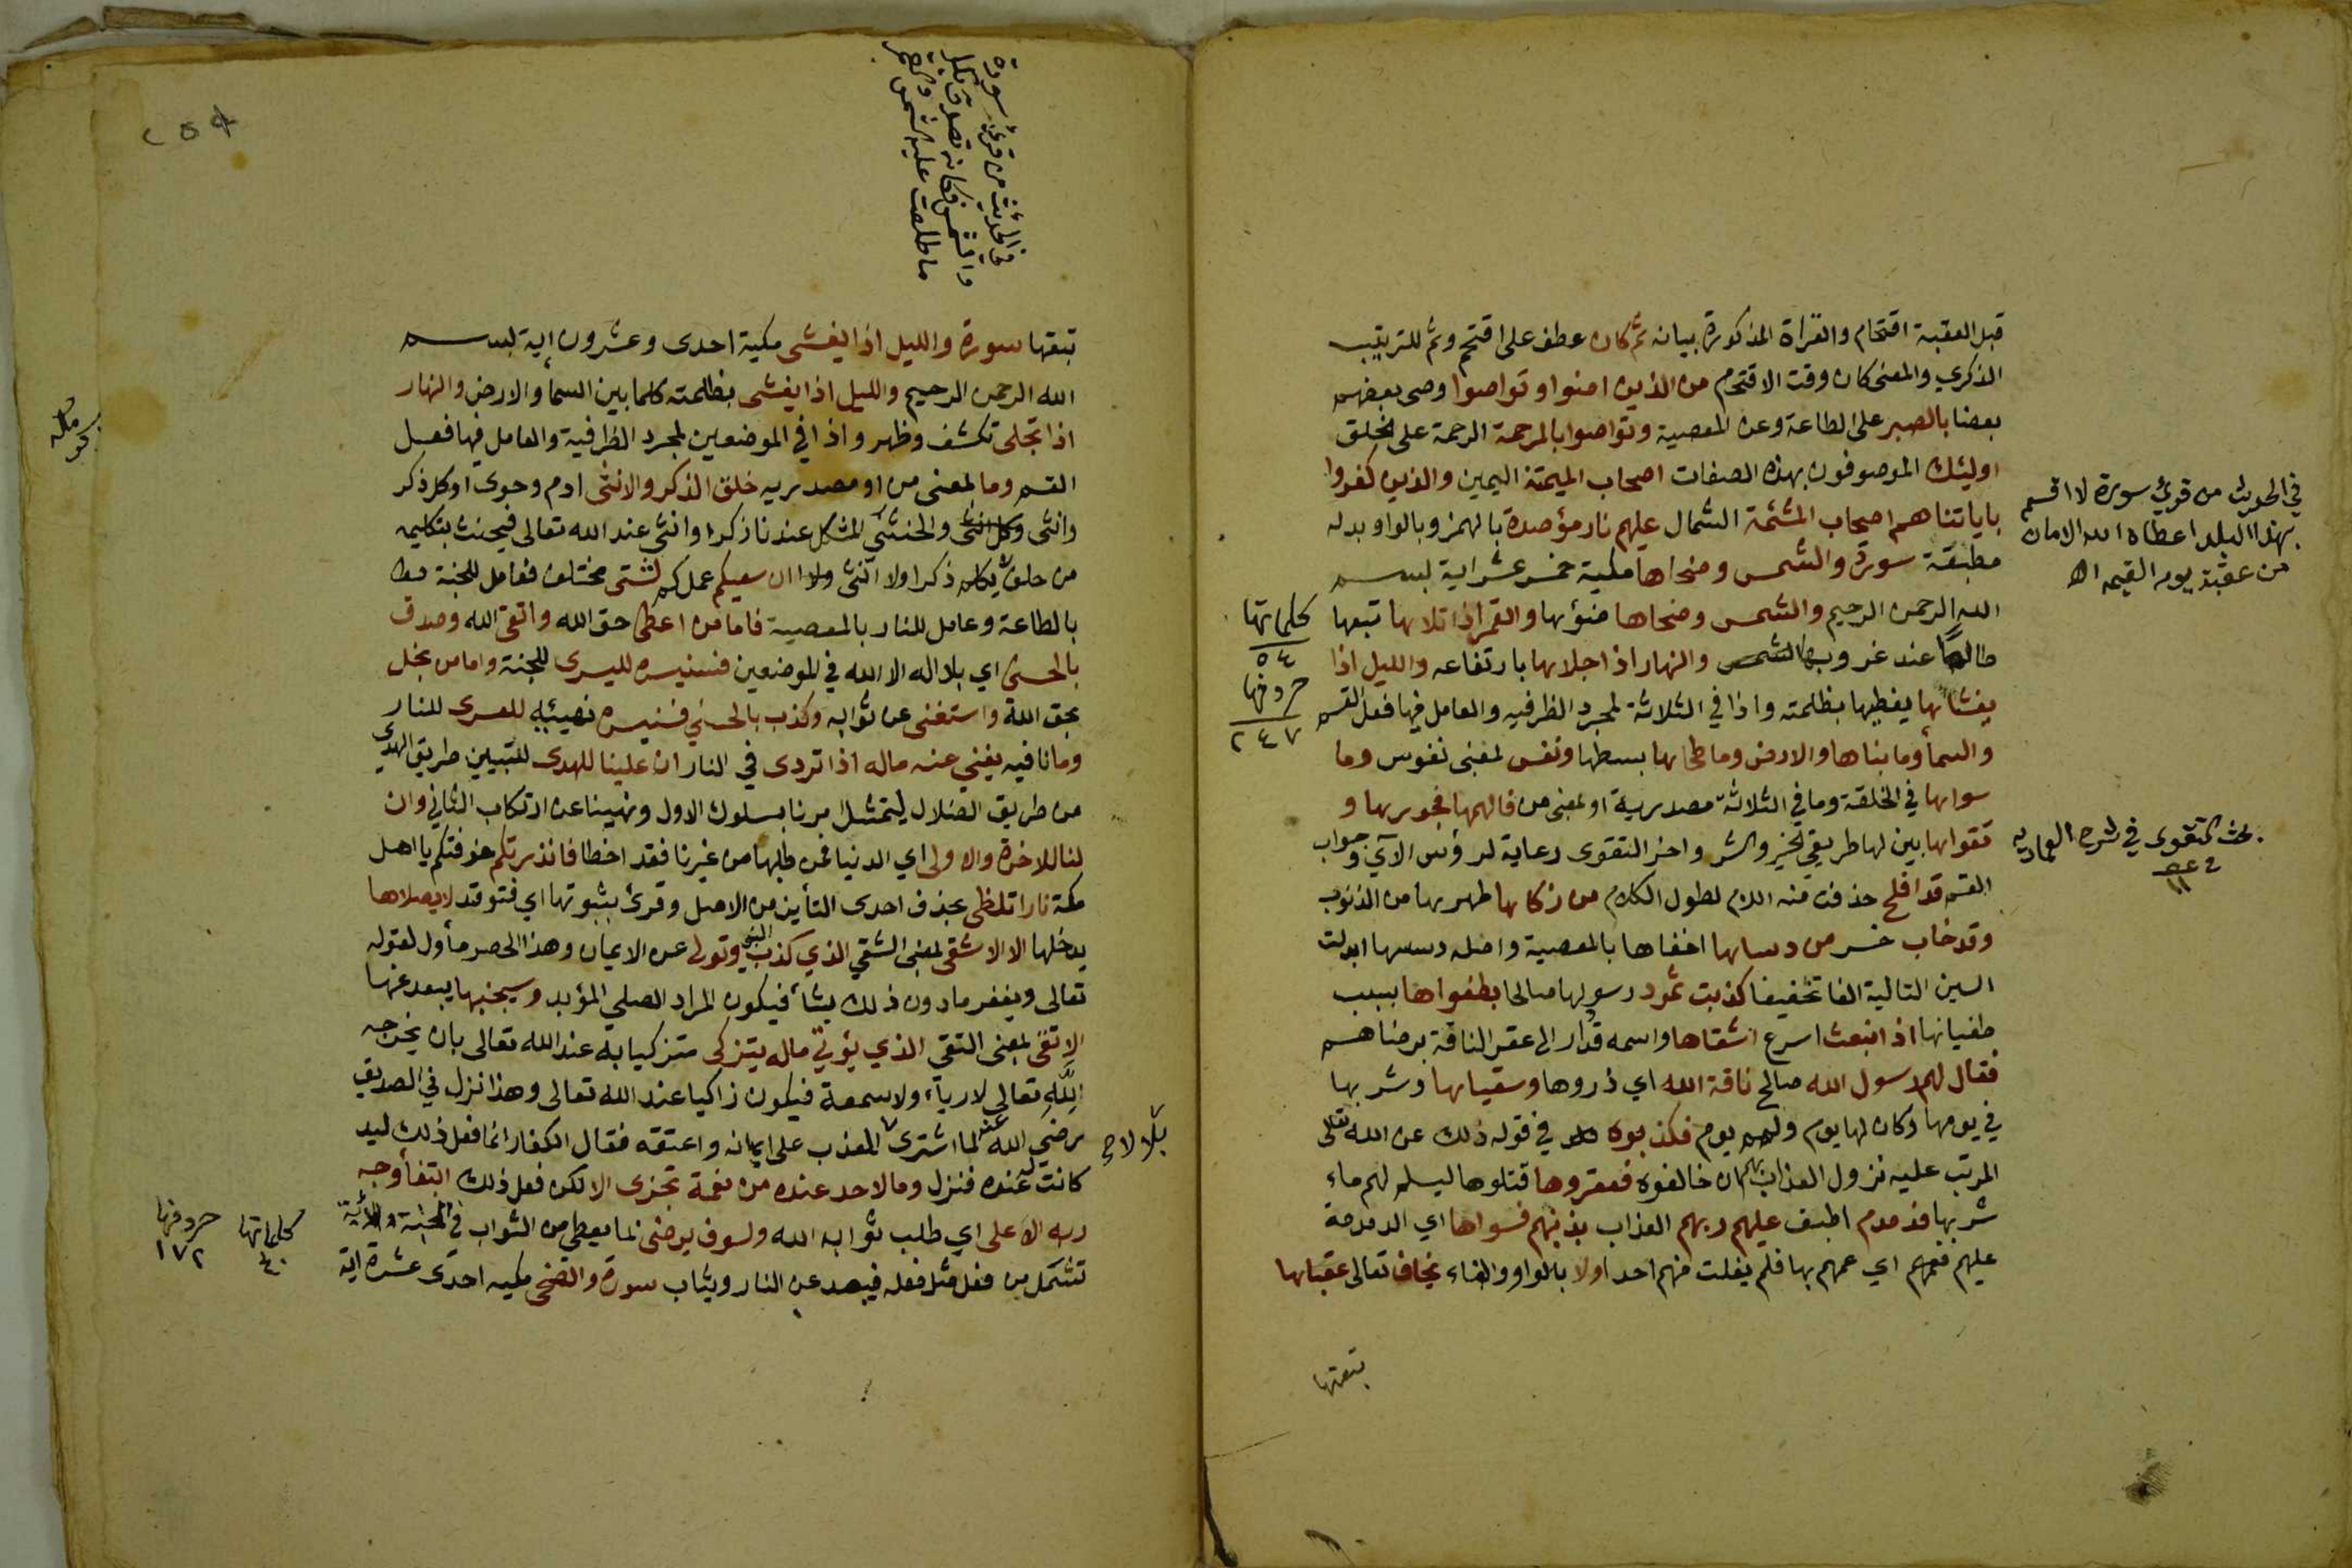 قبل العقبة اقتحام والقرأة المذكورة بيانه ثم كان عطف على اقتحم وثم للترتيب
الذكري والمعنى كان وقت الاقتحام من الذين امنوا وتواصوا وصى بعضهم
بعضا بالصبر على الطاعة وعن المعصية وتواصوا بالمرحمة الرحمة على الخلق
اوليئك الموصوفون بهذه الصفات اصحاب الميمنة اليمين والذين كفروا
باياتنا هم اصحاب المشئمة الشمال عليهم نار مؤصدة بالهمز وبالواو بدله
مطبقة سورة والشمس وضحاها مكية خمس عشر اية بسم
الله الرحمن الرحيم والشمس وضحاها ضوئها والقمر اذا تلاها تبعها
طالعا عند غروبها والنهار اذا جلاها بارتفاعه والليل اذا
يغشاها يغطيها بظلمته واذا في الثلاثة لمجرد الظرفيه والعامل فيها فعل القسم
والسمأ وما بناها والارض وما طحاها بسطها ونفس لمعنى نفوس وما
سواها في الخلقة وما في الثلاثة مصدرية او لمعنى من فالهمها فجورها و
تقواها بين لها طريقي الخير والشر واخر التقوى رعاية لرؤس الآي وجواب
القسم قد افلح حذفت منه اللام لطول الكلام من زكاها طهرها من الذنوب
وقد خاب خسر من دساها اخفاها بالمعصية واصله دسسها ابدلت
السين الثالية الفا تخفيفا كذبت ثمود رسولها صالحا بطغواها بسبب
طغيانها اذ انبعث اسرع اشقاها واسمه قدار الى عقر الناقة برضاهم
فقال لهم رسول الله صالح ناقة الله اي ذروها وسقياها وشربها
في يومها وكان لها يوم ولهم يوم فكذبوه في قوله ذلك عن الله تعالى
المرتب عليه نزول العذاب بهم ان خالفوه فعقروها قتلوها ليسلم لهم ماء
شربها فدمدم اطبق عليهم ربهم العذاب بذنبهم فسواها اي الدمدمة
عليهم فعمهم اي عمهم بها فلم يفلت منهم احد اولا بالواو والفاء يخاف تعالى عقباها
تبعتها
في الحديث من قرئ سورة لا اقسم
بهذا البلد اعطاه الله الامان
من عقبة يوم القيمه اه
كلماتها
٥٤
حروفها
٢٤٧
بحث التقوى في شرح العمادية
في الحديث من قرئ سورة
والشمس فكانه تصدق بكل
ما طلعت عليه الشمس والقمر
٢٥٩
تبعتها سورة والليل اذا يغشى مكية احدى وعشرون اية بسم
الله الرحمن الرحيم والليل اذا يغشى بظلمته كلما بين السمأ والارض والنهار
اذا تجلى تكشف وظهر واذا في الموضعين لمجرد الظرفية والعامل فيها فعل
القسم وما لمعنى من او مصدريه خلق الذكر والانثى ادم وحوى او كل ذكر
وانثى والخنثى المشكل عندنا ذكر او انثى عند الله تعالى فيحنث بتكليمه
من حلف لا يكلم ذكرا ولا انثى ان سعيكم عملكم لشتى مختلف فعامل للجنة
بالطاعة وعامل للنار بالمعصية فاما من اعطى حق الله واتقى الله وصدق
بالحسنى اي بلا اله الا الله في الموضعين فسنيسره لليسرى للجنة واما من بخل
بحق الله واستغنى عن ثوابه وكذب بالحسنى فسنيسره نهيئه للعسرى للنار
وما نافيه يغني عنه ماله اذا تردى في النار ان علينا للهدى لتبيين طريق الهدى
من طريق الضلال ليتمثل امرنا بسلوك الاول ونهينا عن ارتكاب الثاني وان
لنا للاخرة والاولى اي الدنيا فمن طلبها من غيرنا فقد اخطا فانذرتكم خوفتكم يا اهل
مكة نارا تلظى بحذف احدى التأين من الاصل وقرئ بثبوتها اي فتوقد لا يصلاها
يدخلها الا الاشقى لمعنى الشقي الذي كذب النبي وتولى عن الايمان وهذا الحصر مأول لقوله
تعالى ويغفر ما دون ذلك يشأ فيكون المراد الصلي المؤبد وسيجنبها يبعد عنها
الاتقى لمعنى التقي الذي يؤتي ماله يتزكى متزكيا به عند الله تعالى بان يخرجه
لله تعالى لا رياء ولا سمعة فيكون زاكيا عند الله تعالى وهذا نزل في الصديق
رضي الله عنه لما اشترى المعذب على ايمانه واعتقه فقال الكفار انما فعل ذلك ليد
كانت له عنده فنزل وما لاحد عنده من نعمة تجزى الا لكن فعل ذلك ابتغأ وجه
ربه الاعلى اي طلب ثوابه الله ولسوف يرضى لما يعطى من الثواب في الجنة والاية
تشمل من فعل مثل فعله فيبعد عن النار ويثاب سورة والضحى مكيه احدى عشرة اية
بلالا
كلماتها
٤٠
حروفها
١٧٢